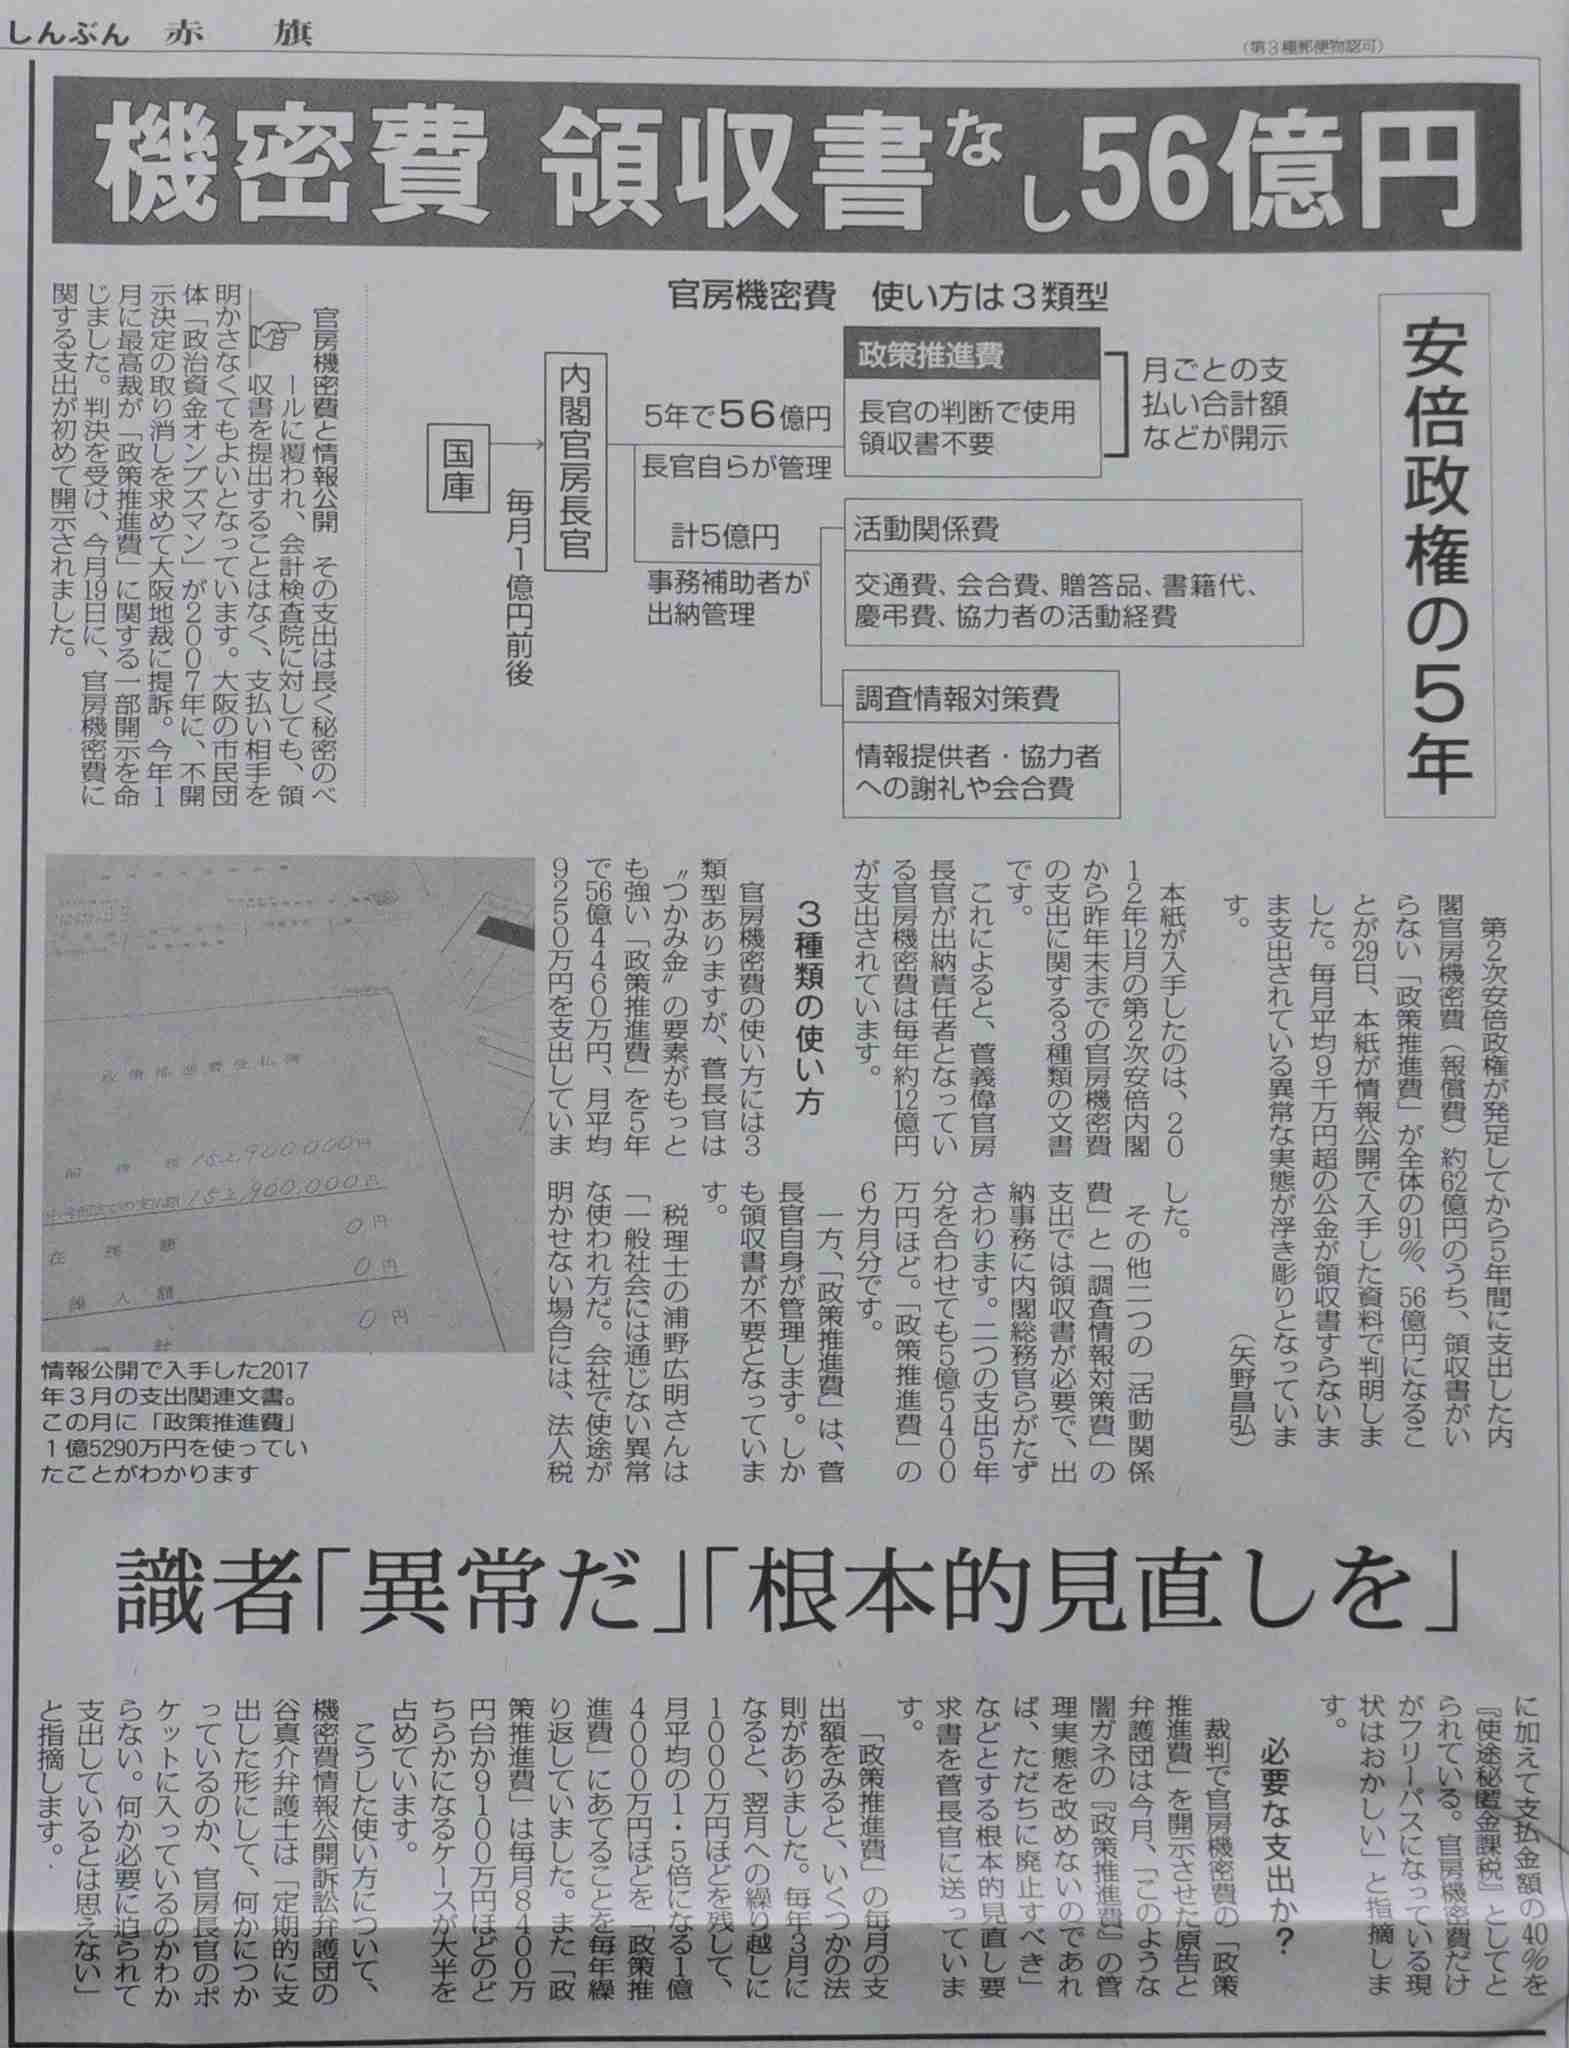 しんぶん 赤旗
(第3種郵便物認可)
機密費 領収書なし56億円
安倍政権の5年
官房機密費 使い方は3類型
国庫
毎月1億円前後
内閣官房長官
5年で56億円
長官自らが管理
政策推進費
長官の判断で使用
領収書不要
月ごとの支
払い合計額
などが開示
計5億円
事務補助者が
出納管理
活動関係費
交通費、会合費、贈答品、書籍代、
慶弔費、協力者の活動経費
調査情報対策費
情報提供者・協力者
への謝礼や会合費
官房機密費と情報公開 その支出は長く秘密のベ
ールに覆われ、会計検査院に対しても、領
収書を提出することはなく、支払い相手を
明かさなくてもよいとなっています。大阪の市民団
体「政治資金オンブズマン」が2007年に、不開
示決定の取り消しを求めて大阪地裁に提訴。今年1
月に最高裁が「政策推進費」に関する一部開示を命
じました。判決を受け、今月19日に、官房機密費に
関する支出が初めて開示されました。
第2次安倍政権が発足してから5年間に支出した内
閣官房機密費(報償費)約62億円のうち、領収書がい
らない「政策推進費」が全体の91%、56億円になるこ
とが29日、本紙が情報公開で入手した資料で判明しま
した。毎月平均9千万円超の公金が領収書すらないま
ま支出されている異常な実態が浮き彫りとなっていま
す。
(矢野昌弘)
本紙が入手したのは、20
12年12月の第2次安倍内閣
から昨年末までの官房機密費
の支出に関する3種類の文書
です。
これによると、菅義偉官房
長官が出納責任者となってい
る官房機密費は毎年約12億円
が支出されています。
3種類の使い方
官房機密費の使い方には3
類型ありますが、菅長官は
〝つかみ金〟の要素がもっと
も強い「政策推進費」を5年
で56億4460万円、月平均
9250万円を支出していま
した。
その他二つの「活動関係
費」と「調査情報対策費」の
支出では領収書が必要で、出
納事務に内閣総務官らがたず
さわります。二つの支出5年
分を合わせても5億5400
万円ほど。「政策推進費」の
6カ月分です。
一方、「政策推進費」は、菅
長官自身が管理します。しか
も領収書が不要となっていま
す。
税理士の浦野広明さんは
「一般社会には通じない異常
な使われ方だ。会社で使途が
明かせない場合には、法人税
政策推進費受払簿
152,900,000円
152,900,000円
0円
0円
0円
情報公開で入手した2017
年3月の支出関連文書。
この月に「政策推進費」
1億5290万円を使ってい
たことがわかります
識者「異常だ」「根本的見直しを」
に加えて支払金額の40%を
『使途秘匿金課税』としてと
られている。官房機密費だけ
がフリーパスになっている現
状はおかしい」と指摘しま
す。
必要な支出か?
裁判で官房機密費の「政策
推進費」を開示させた原告と
弁護団は今月、「このような
闇ガネの『政策推進費』の管
理実態を改めないのであれ
ば、ただちに廃止すべき」
などとする根本的見直し要
求書を菅長官に送っていま
す。
「政策推進費」の毎月の支
出額をみると、いくつかの法
則がありました。毎年3月に
なると、翌月への繰り越しに
1000万円ほどを残して、
月平均の1・5倍になる1億
4000万円ほどを「政策推
進費」にあてることを毎年繰
り返していました。また「政
策推進費」は毎月8400万
円台か9100万円ほどのど
ちらかになるケースが大半を
占めています。
こうした使い方について、
機密費情報公開訴訟弁護団の
谷真介弁護士は「定期的に支
出した形にして、何かにつか
っているのか、官房長官のポ
ケットに入っているのかわか
らない。何か必要に迫られて
支出しているとは思えない」
と指摘します。